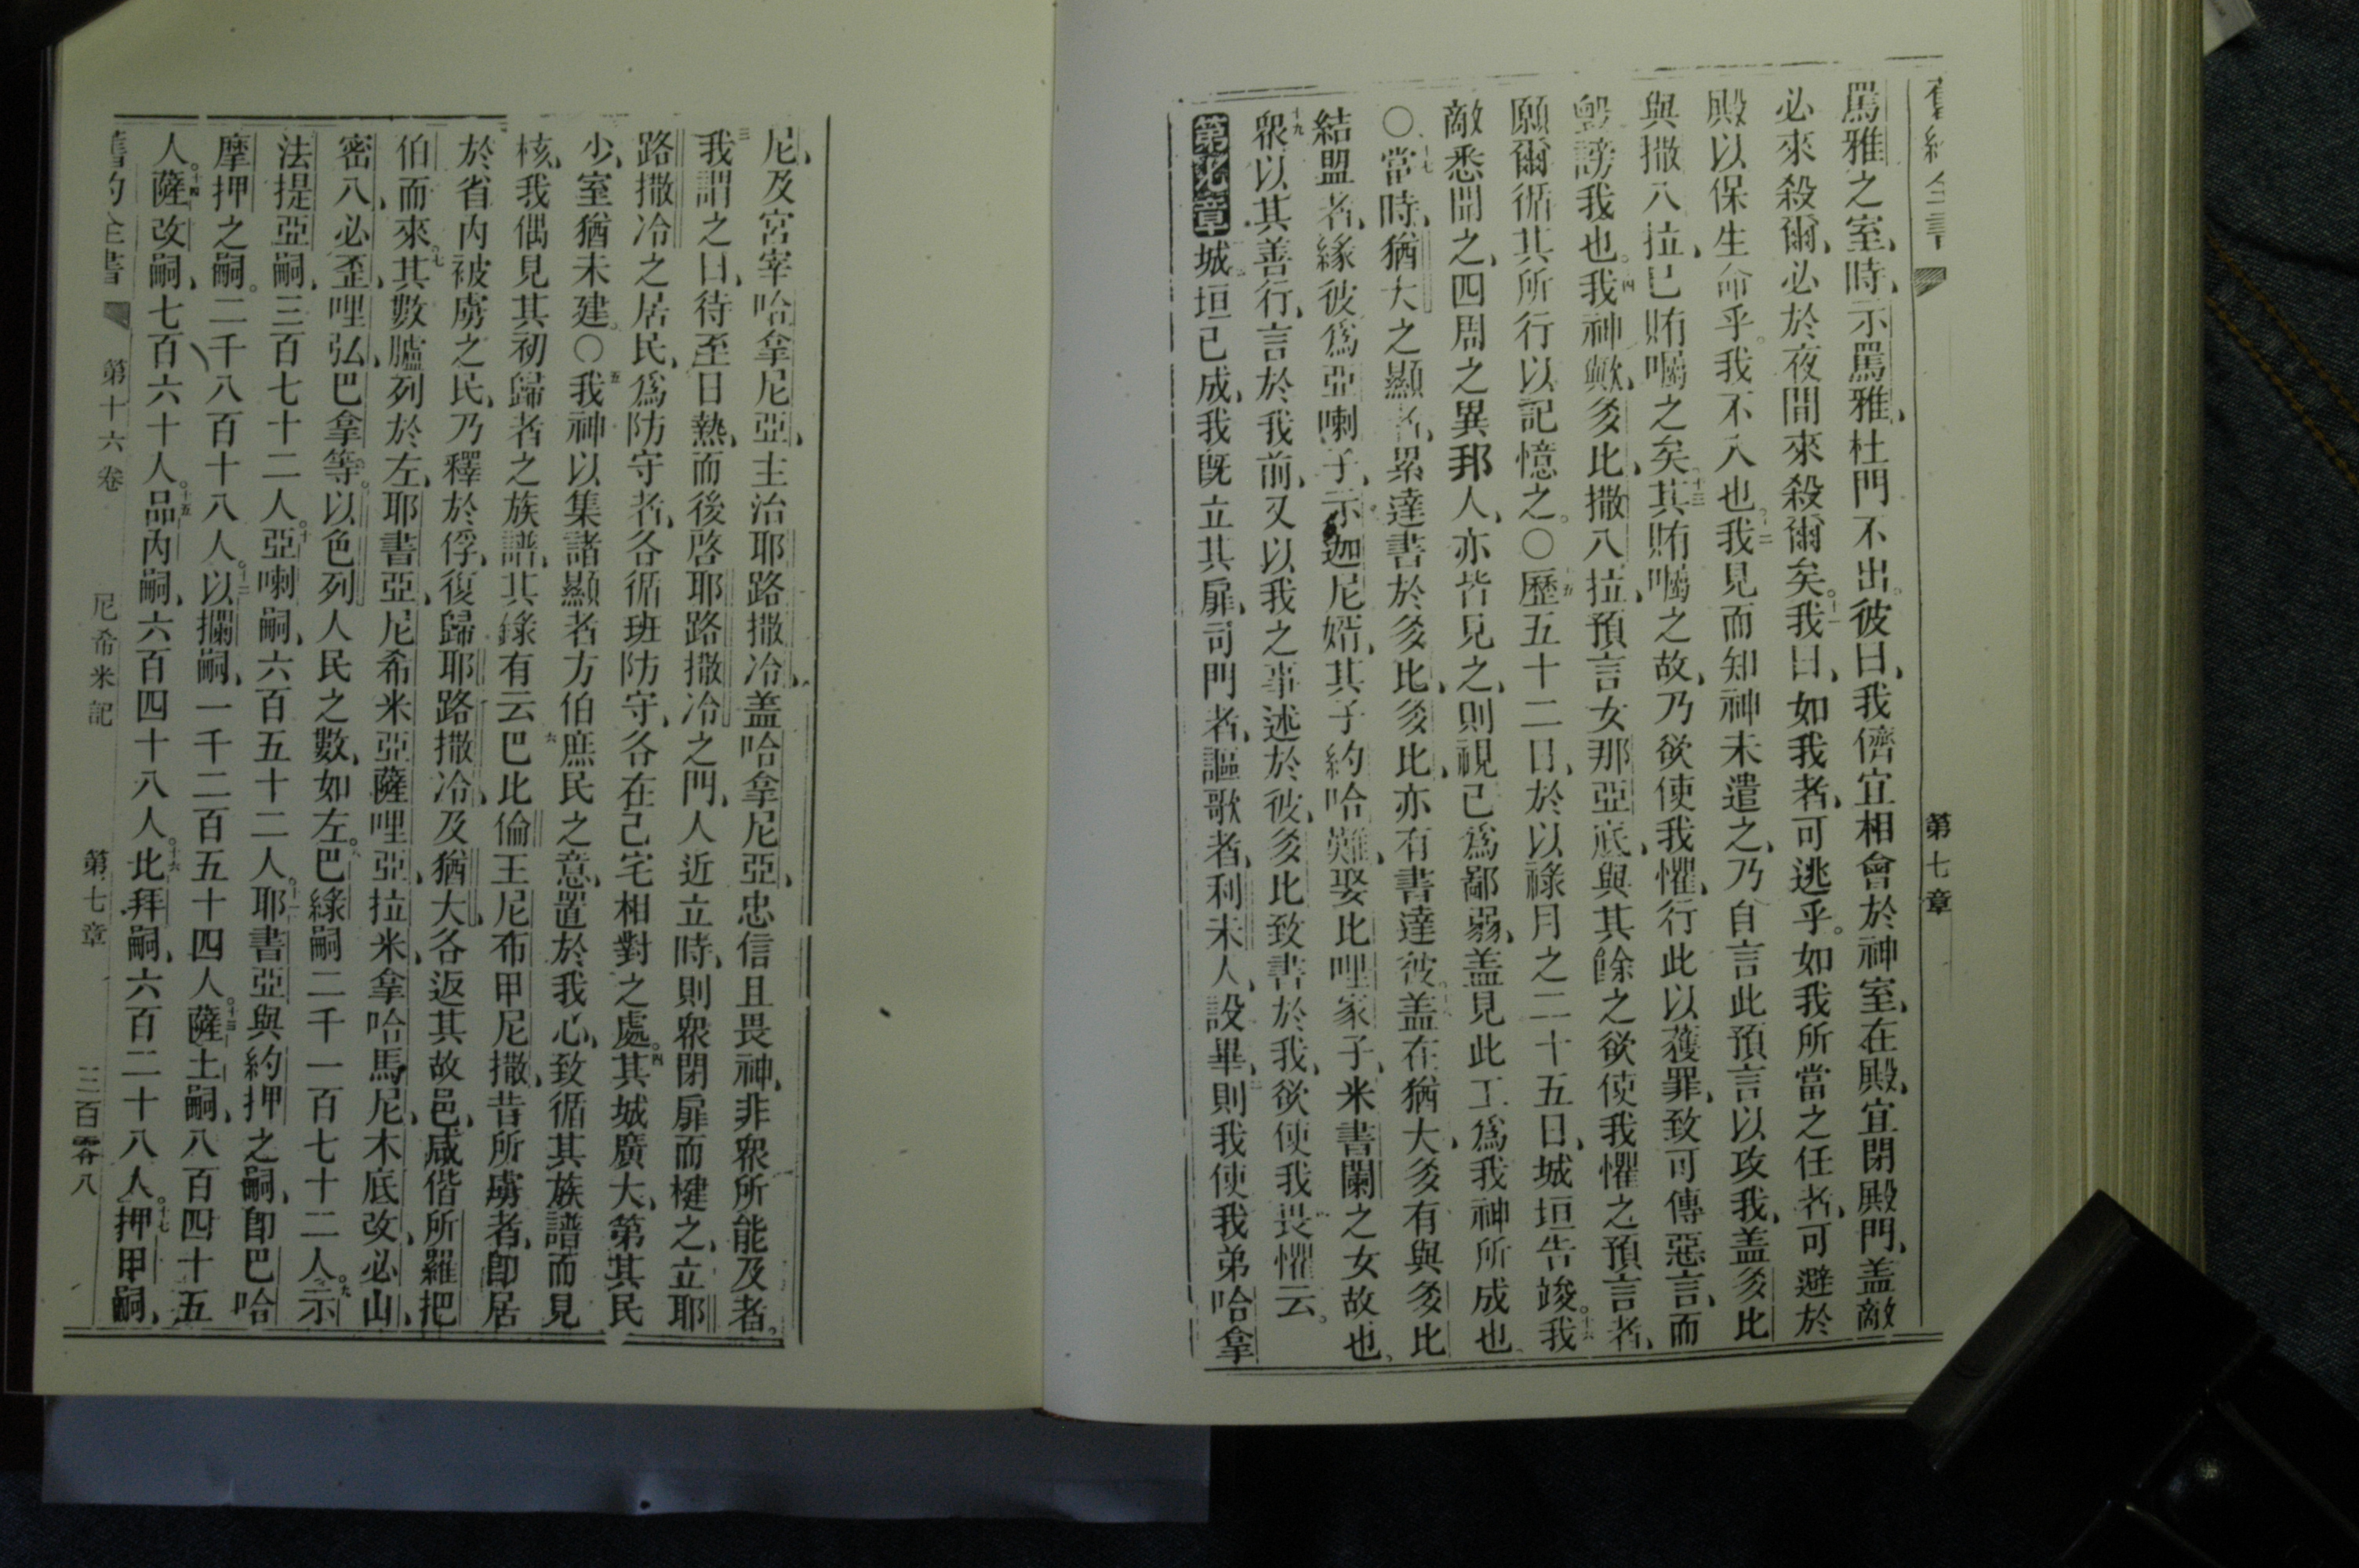 舊約全書 第七章
罵雅之室、時、示罵雅、杜門不出。彼曰、我儕宜相會於神室、在殿、宜閉殿門、盖敵
必來殺爾、必於夜間來殺爾矣。十一我曰、如我者、可逃乎。如我所當之任者、可避於
殿以保生命乎。我不入也。十二我見而知神未遣之、乃自言此預言以攻我、盖㕕比
與撒八拉、已賄囑之矣。十三其賄囑之故、乃欲使我懼、行此以獲罪、致可傳惡言、而
毀謗我也。十四我神歟、㕕比、撒八拉、預言女那亞底、與其餘之欲使我懼之預言者、
願爾循其所行以記憶之。〇十五歷五十二日、於以祿月之二十五日、城垣告竣。十六我
敵悉聞之、四周之異邦人、亦皆見之、則視己爲鄙弱、盖見此工爲我神所成也
〇十七當時、猶大之顯者、累達書於㕕比、㕕比、亦有書達彼。十八盖在猶大、㕕有與㕕比
結盟者、緣彼爲亞喇子、示迦尼婿、其子約哈難、娶比哩家子、米書闌之女故也、
十九衆以其善行、言於我前、又以我之事述於彼、㕕比致書於我、欲使我畏懼云。
第七章城垣已成、我旣立其扉、司門者、謳歌者、利未人、設畢、二則我使我弟哈拿
尼、及宮宰哈拿尼亞、主治耶路撒冷、盖哈拿尼亞、忠信且畏神、非衆所能及者。
三我謂之曰、待至日熱、而後啓耶路撒冷之門、人近立時、則衆閉扉而楗之、立耶
路撒冷之居民、爲防守者、各循班防守、各在己宅相對之處。四其城廣大、第其民
少、室猶未建。〇五我神以集諸顯者方伯庶民之意、置於我心、致循其族譜而見
核、我偶見其初歸者之族譜、其錄有云、六巴比倫王尼布甲尼撒、昔所虜者、卽居
於省內被虜之民、乃釋於俘、復歸耶路撒冷、及猶大、各返其故邑、咸偕所羅把
伯而來。七其數臚列於左、耶書亞、尼希米亞薩哩亞、拉米、拿哈馬尼、木底改、必山、
密八、必歪、哩弘、巴拿等。以色列人民之數、如左。八巴綠嗣二千一百七十二人。九示
法提亞嗣、三百七十二人。十亞喇嗣、六百五十二人。十一耶書亞與約押之嗣、卽巴哈
摩押之嗣。二千八百十八人。十二以攔嗣、一千二百五十四人。十三薩土嗣、八百四十五
人。十四薩改嗣、七百六十人。十五品內嗣、六百四十八人。十六比拜嗣、六百二十八人。十七押甲嗣、
舊約全書 第十六卷 尼希米記 第七章 三百零八